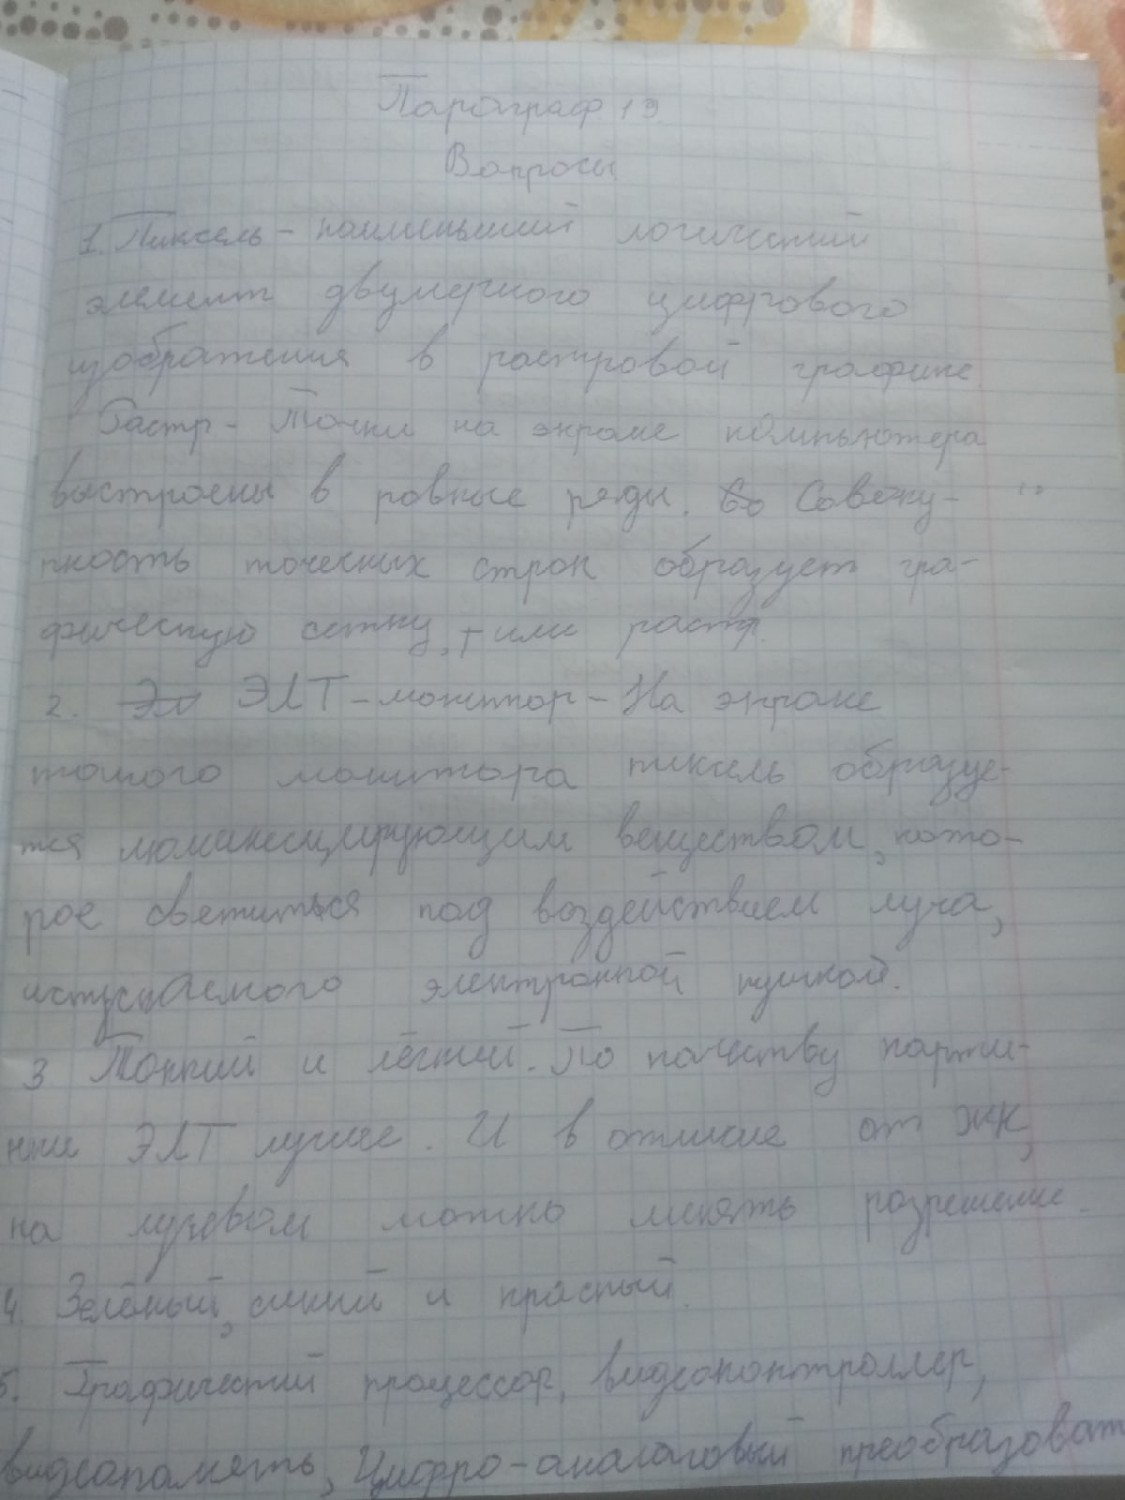 Параграф 19
Вопросы
1. Пиксель - наименьший логический
элемент двумерного цифрового
изображения в растровой графике
Растр - Точки на экране компьютера
выстроены в ровные ряды. Со Совоку-
пность точечных строк образует гра-
фическую сетку, или растр.
2. Эл ЭЛТ - монитор - На экране
такого монитора пиксель образуе-
тся люминесцирующим веществом, кото-
рое светиться под воздействием луча,
испускаемого электронной пушкой.
3 Тонкий и лёгкий. По качеству карти-
нки ЭЛТ лучше. И в отличие от ЖК,
на лучевом можно менять разрешение.
4. Зелёный, синий и красный.
5. Графический процессор, видеоконтроллер,
видеопамять, Цифро-аналоговый преобразоват